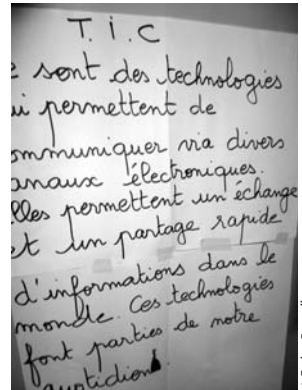 T. i. C
e sont des technologies
ui permettent de
mmuniquer via divers
anaux électroniques.
lles permettent un échange
et un partage rapide
d'informations dans le
monde. Ces technologies
font parties de notre
quotidien.